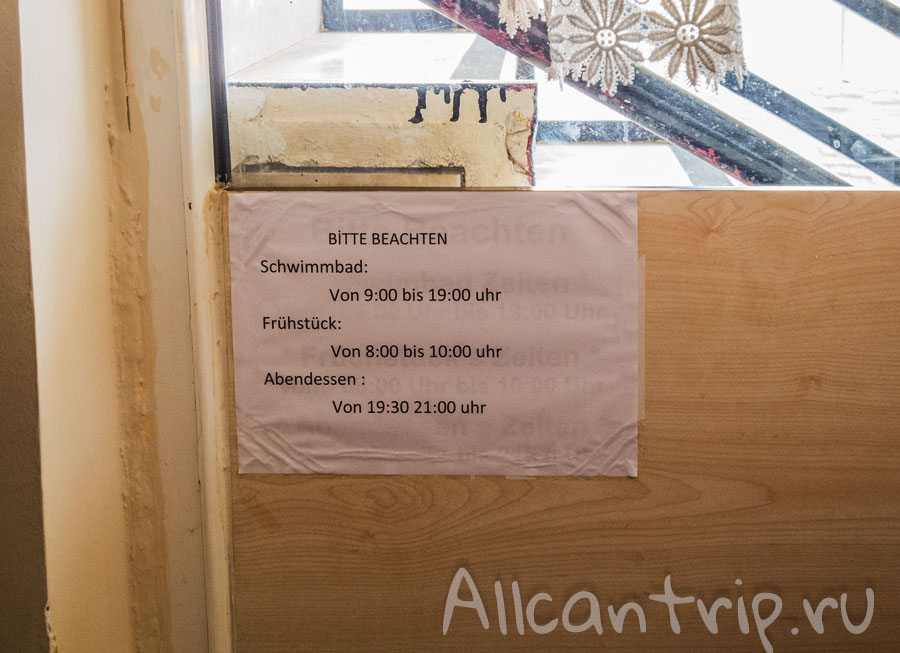 BİTTE BEACHTEN
Schwimmbad:
Von 9:00 bis 19:00 uhr
Frühstück:
Von 8:00 bis 10:00 uhr
Abendessen :
Von 19:30 21:00 uhr
Allcantrip.ru